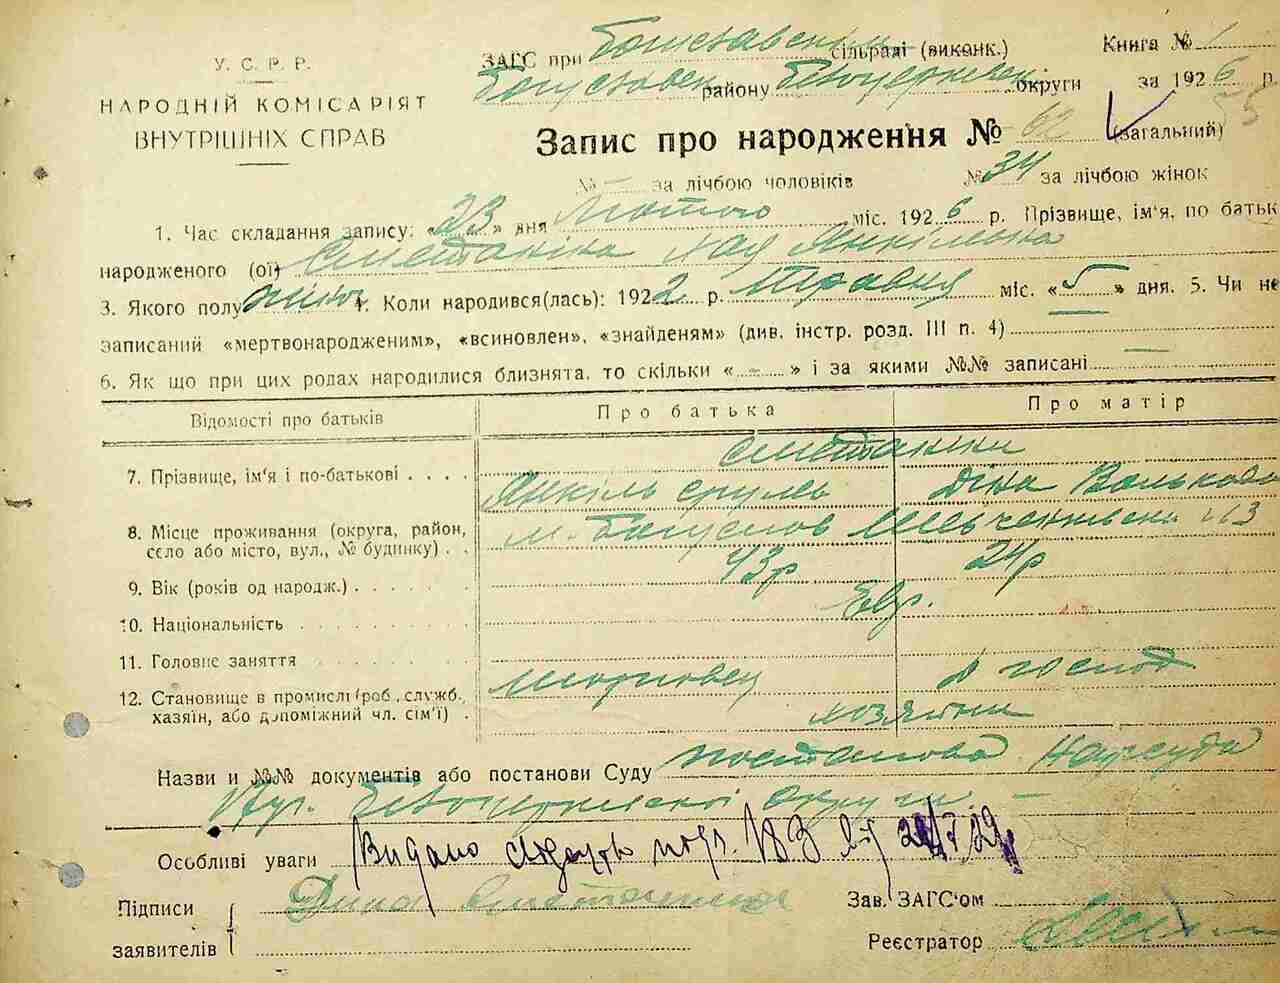 У. С. Р. Р.
НАРОДНІЙ КОМІСАРІЯТ
ВНУТРІШНІХ СПРАВ
ЗАГС при Богуславськім сільраді (виконк.)
Книга № 1
Богуславськ району Білоцерківськ округи за 1926 р.
Запис про народження № 62 (загальний)
№ — за лічбою чоловіків № 34 за лічбою жінок
1. Час складання запису: «23» дня Лютого міс. 1926 р. Прізвище, ім'я, по батьк
народженого (ої) Сметаніна Хая Янкільвна
3. Якого полу жіноч 4. Коли народився(лась): 1922 р. Травня міс. «5» дня. 5. Чи не
записаний «мертвонародженим», «всиновлен», «знайденям» (див. інстр. розд. III п. 4)
6. Як що при цих родах народилися близнята, то скільки « — » і за якими №№ записані —
Відомості про батьків Про батька Про матір
7. Прізвище, ім'я і по-батькові Сметаніни
Янкіль Срулев Діна Вольковна
8. Місце проживання (округа, район, село або місто, вул., № будинку) м. Богуслов Шевченківськ 113
9. Вік (років од народж.) 43 р 24 р
10. Національність Евр.
11. Головне заняття
12. Становище в промислі (роб., служб., хазяїн, або допоміжний чл. сім'ї) хозяїни
Назви и №№ документів або постанови Суду постанова Нарсуда
округи —
Особливі уваги Видано
Підписи заявителів Дина Сметанина
Зав. ЗАГС'ом
Реєстратор